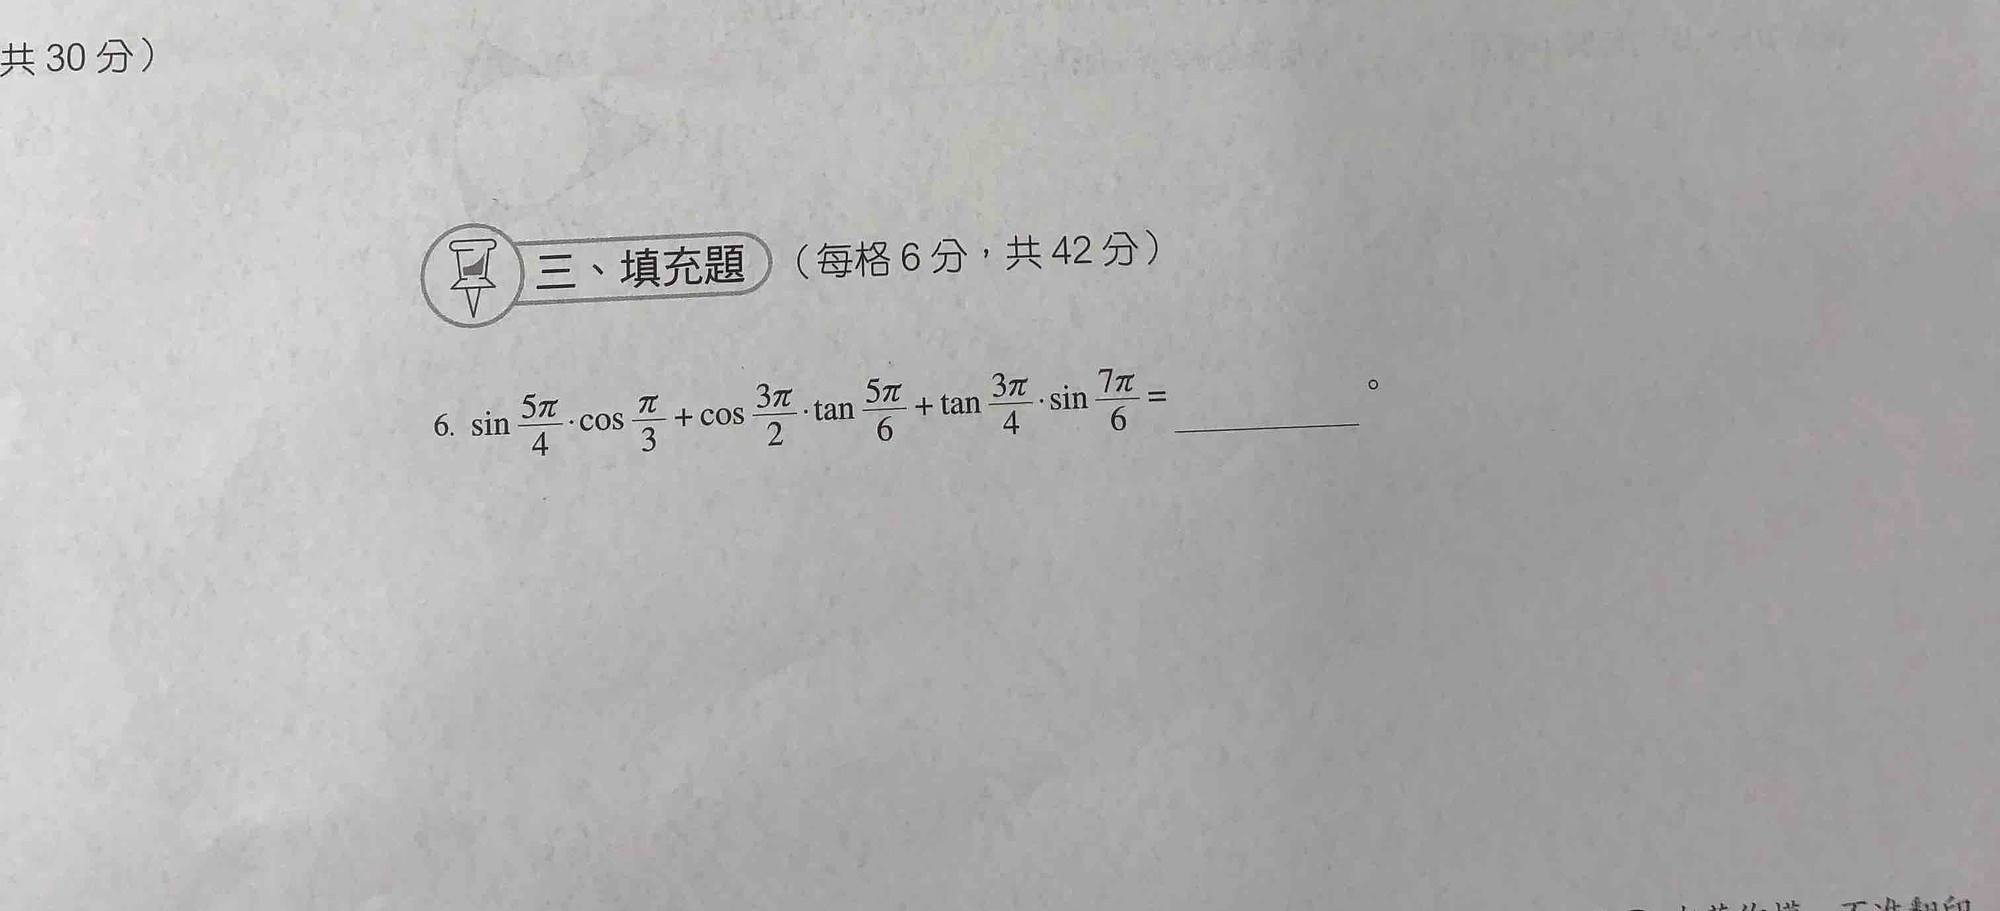 共 30 分）
三、填充題（每格 6 分，共 42 分）
6. sin 5π/4 · cos π/3 + cos 3π/2 · tan 5π/6 + tan 3π/4 · sin 7π/6 = ________。
不准翻印